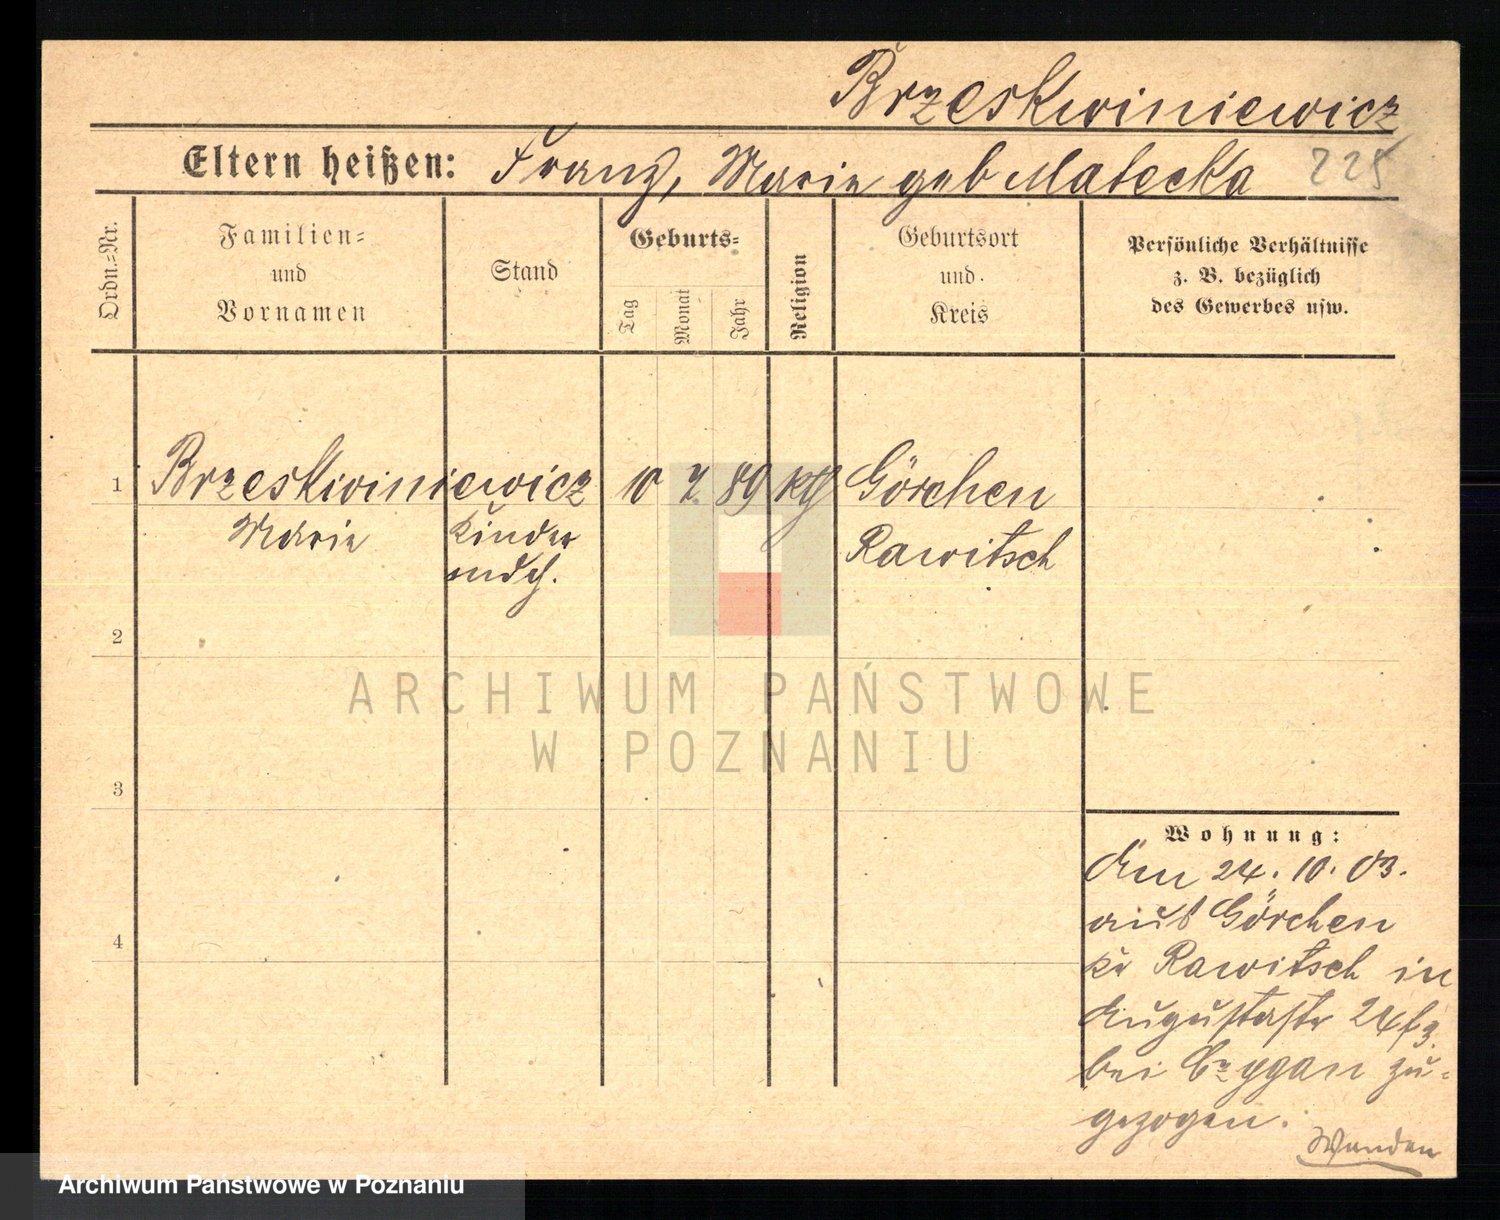 Brzeskwiniewicz
Eltern heißen: Franz, Marie geb Matecka 225
Ordn.=Nr.
Familien=
und
Vornamen
Stand
Geburts=
Tag
Monat
Jahr
Religion
Geburtsort
und
Kreis
Persönliche Verhältnisse
z. B. bezüglich
des Gewerbes usw.
1 Brzeskwiniewicz 10 7. 89 kth Görchen
Marie Kinder Rawitsch
mdch.
2
3
4
Wohnung:
Am 24. 10. 03.
aus Görchen
Kr Rawitsch in
Augustastr 24
bei Cygan zu=
gezogen.
ARCHIWUM PAŃSTWOWE
W POZNANIU
Archiwum Państwowe w Poznaniu